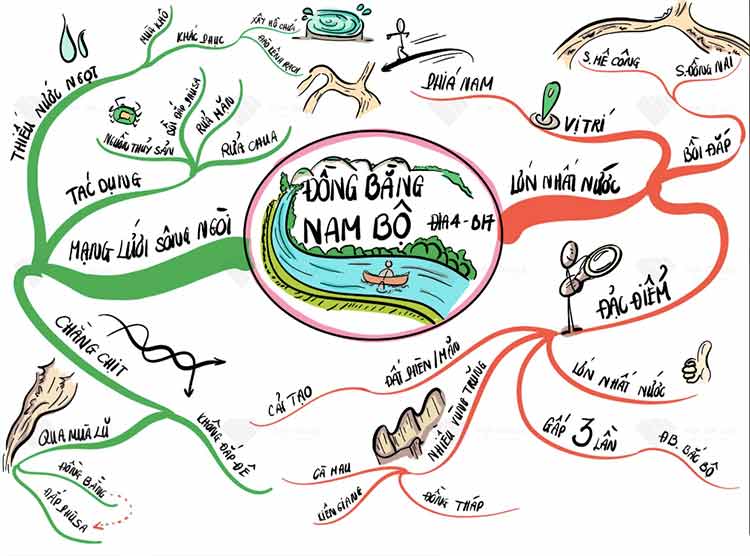 ĐỒNG BẰNG
NAM BỘ
ĐỊA 4 - B17
LỚN NHẤT NƯỚC
VỊ TRÍ
PHÍA NAM
BỒI ĐẮP
S. MÊ CÔNG
S. ĐỒNG NAI
ĐẶC ĐIỂM
LỚN NHẤT NƯỚC
GẤP 3 LẦN
Đ.B. BẮC BỘ
NHIỀU VÙNG TRŨNG
ĐỒNG THÁP
KIÊN GIANG
CÀ MAU
ĐẤT PHÈN / MẶN
CẢI TẠO
MẠNG LƯỚI SÔNG NGÒI
THIẾU NƯỚC NGỌT
MÙA KHÔ
KHẮC PHỤC
XÂY HỒ CHỨA
ĐÀO KÊNH RẠCH
TÁC DỤNG
NGUỒN THỦY SẢN
BỒI ĐẮP PHÙ SA
RỬA MẶN
RỬA CHUA
CHẰNG CHỊT
KHÔNG ĐẮP ĐÊ
QUA MÙA LŨ
ĐỒNG BẰNG
ĐẮP PHÙ SA